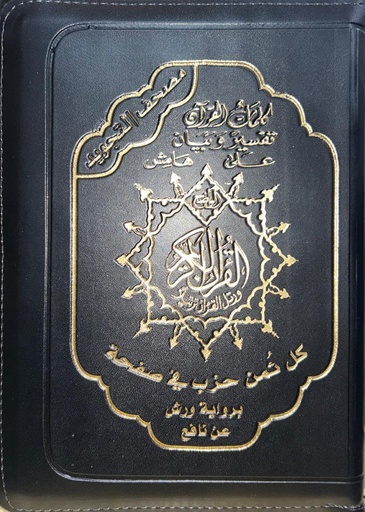 مصحف التجويد
كلمات القرآن
تفسير وبيان
على هامش
القرآن الكريم
ورتل القرآن ترتيلا
كل ثمن حزب في صفحة
برواية ورش
عن نافع